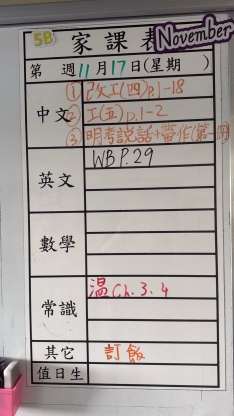 5B 家課表 November
第 週 11月17日(星期 )
中文 ① 改工(四)p.1-18
② 工(五)p.1-2
③ 明考說話+
英文 WB P.29
數學
常識 溫 Ch. 3、4
其它 訂飯
值日生